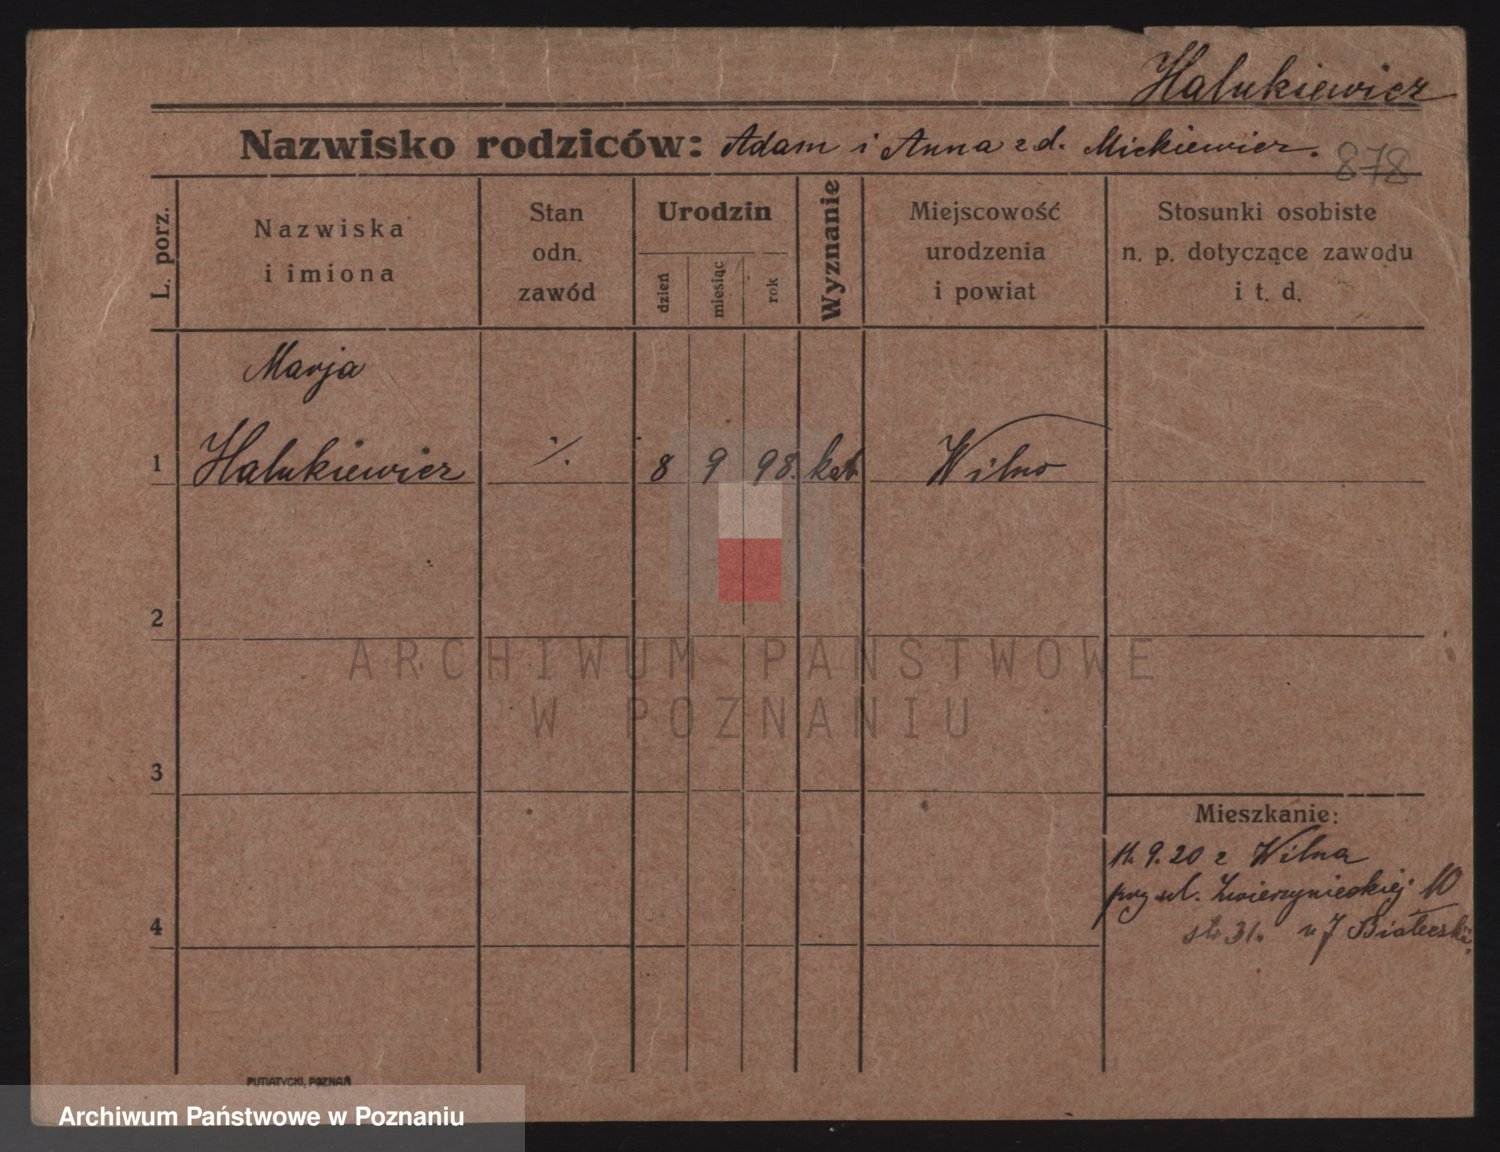 Halukiewicz
Nazwisko rodziców: Adam i Anna z d. Mickiewicz.
878
L. porz.
Nazwiska
i imiona
Stan
odn.
zawód
Urodzin
dzień
miesiąc
rok
Wyznanie
Miejscowość
urodzenia
i powiat
Stosunki osobiste
n. p. dotyczące zawodu
i t. d.
Marja
1 Halukiewicz ./. 8 9 98. kat. Wilno
2
3
4
Mieszkanie:
11. 9. 20 z Wilna
przy ul. Zwierzynieckiej 10
str 31. u J Białecki
ARCHIWUM PAŃSTWOWE
W POZNANIU
PUTIATYCKI, POZNAŃ
Archiwum Państwowe w Poznaniu